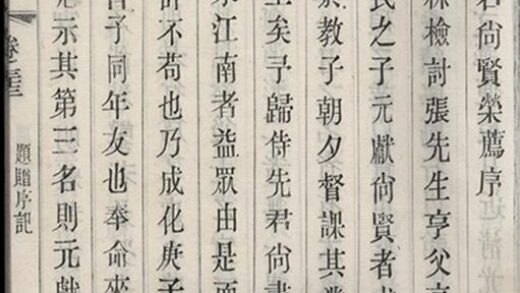 君尚賢榮薦序
林檢討張先生亨父
民之子元獻尚賢者
於教子朝夕督課其
矣予歸侍先君尚書
江南者益眾由是而
許不苟也乃成化庚子
子同年友也奉命來
示其第三名則元獻
卷
題贈序記